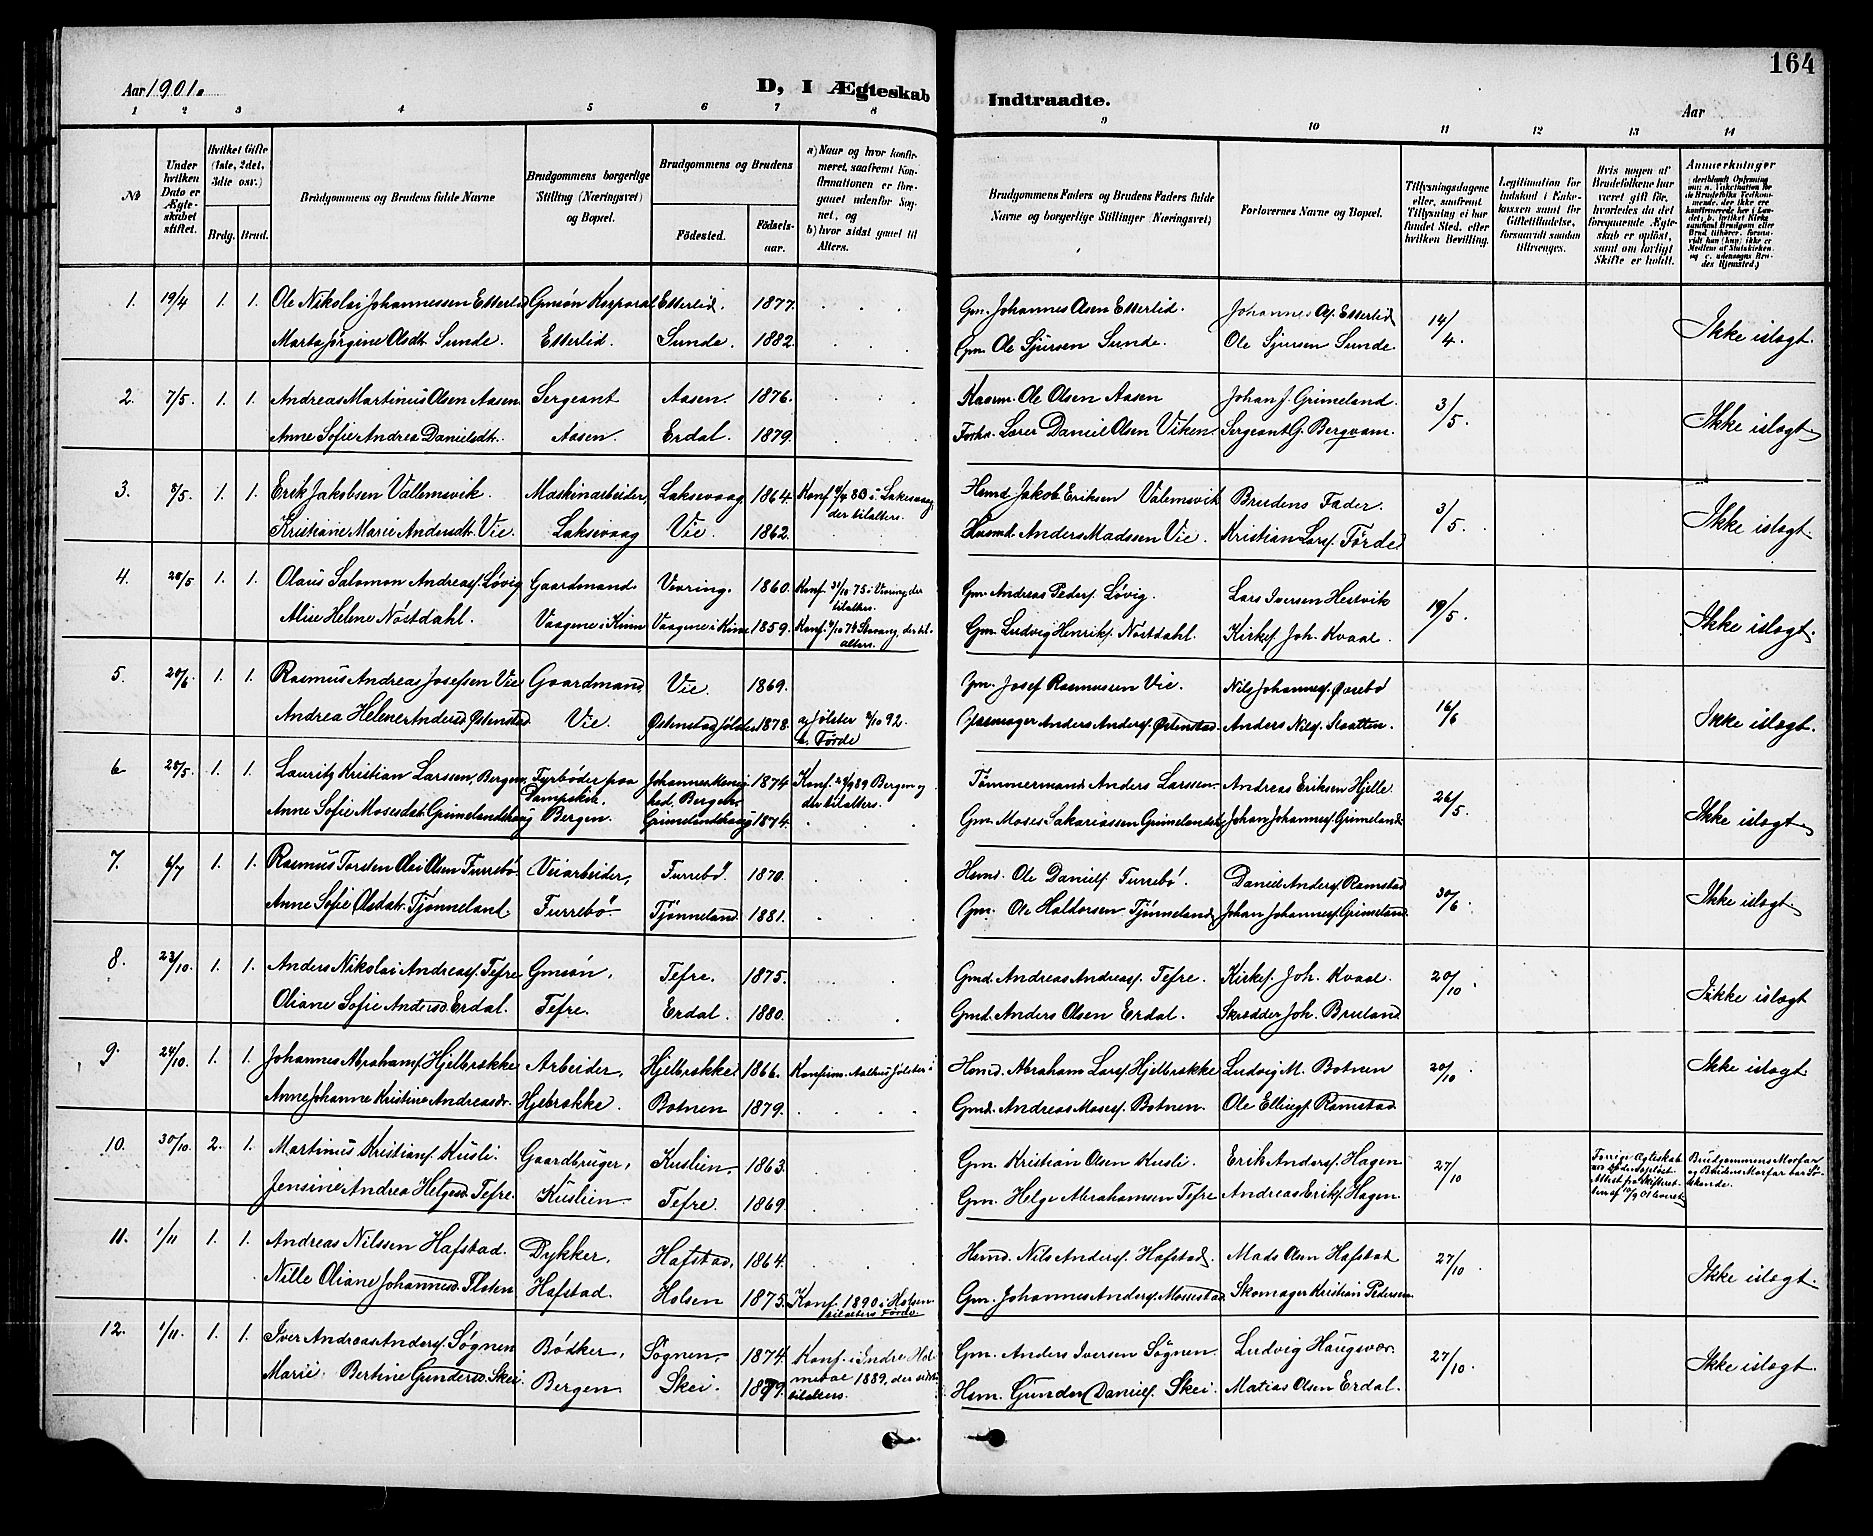 164
Aar 1901.
D, I Ægteskab Indtraadte.
Aar
1 2 3 4 5 6 7 8 9 10 11 12 13 14
№
Under hvilken Dato er Ægteskabet stiftet.
Hvilket Gifte (1ste, 2det, 3die osv.)
Brdg. Brud.
Brudgommens og Brudens fulde Navne
Brudgommens borgerlige Stilling (Næringsvei) og Bopæl.
Brudgommens og Brudens
Fødested.
Fødselsaar.
a) Naar og hvor konfirmeret, saafremt Konfirmationen er foregaaet udenfor Sognet, og
b) hvor sidst gaaet til Alters.
Brudgommens Faders og Brudens Faders fulde Navne og borgerlige Stillinger (Næringsvei)
Forlovernes Navne og Bopæl.
Tillysningsdagene eller, saafremt Tillysning ei har fundet Sted, efter hvilken Bevilling.
Legitimation for Indskud i Enkekassen samt for Giftetilladelse, forsaavidt saadan tiltrænges.
Hvis nogen af Brudefolkene har været gift før, hvorledes da det foregaaende Ægteskab er opløst, samt om lovligt Skifte er holdt.
Anmærkninger
1. 19/4 1. 1. Ole Nikolai Johannessen Etterlid Gmsøn Korporal Etterlid. 1877. Gm. Johannes Olsen Etterlid. Johannes Ols. Etterlid 14/4. Ikke islægt.
Marta Jørgine Olsdt. Sunde. Etterlid Sunde. 1882. Gm. Ole Sjursen Sunde. Ole Sjursen Sunde.
2. 7/5. 1. 1. Andreas Martinus Olsen Aasen Sergeant Aasen. 1876. Kaarm. Ole Olsen Aasen Johan J. Grimeland. 3/5. Ikke islægt.
Anne Sofie Andrea Danielsdt. Aasen. Erdal. 1879. Forhv. Lærer Daniel Olsen Viken. Sergeant G. Bergvam.
3. 8/5. 1. 1. Erik Jakobsen Vallemsvik. Maskinarbeider, Laksevaag 1864. Konf. 83 i Laksevaag, der tilalters. Hsmd. Jakob Eriksen Valemsvik Brudens Fader. 3/5. Ikke islægt.
Kristiane Marie Andersdt. Vie. Laksevaag Vie. 1862. Husmd. Anders Madssen Vie. Kristian Lars. Førde
4. 28/5 1. 1. Olaus Salomon Andreas. Løvig Gaardmand Vevring. 1860. Konf. 31/10 75 i Vevring der tilalters. Gm. Andreas Peders. Løvig. Lars Iversen Hestvik 19/5. Ikke islægt.
Alise Helene Nøstdahl. Vaagene i Kinn Vaagene i Kinn 1859. Gm. Ludvig Henriks. Nøstdahl. Kirkes. Joh. Kvaal.
5. 20/6 1. 1. Rasmus Andreas Josefsen Vie Gaardmand Vie. 1869. Gm. Josef Rasmussen Vie. Nils Johannes. Øvrebø 16/6 Ikke islægt.
Andrea Helene Andersd. Østenstad Vie. Østenstad Jølster 1878. a, Jølster 2/10 92. b, Førde Anders Anders. Østenstad. Anders Nils. Staatten.
6 28/5. 1. 1. Lauritz Kristian Larssen, Bergen, Fyrbøder paa Dampskib. Bergen. 1874 Konf. 29/9 89 Bergen og der tilalters. Tømmermand Anders Larssen. Andreas Eriksen Hjelle 26/5. Ikke islægt.
Anne Sofie Mosesdat. Grimelandshaug Bergen. Grimelandshaug 1874. Gm. Moses Sakariassen Grimelandsh. Johan Johannes. Grimeland.
7. 6/7 1. 1. Rasmus Torsten Olai Olsen Furrebø. Veiarbeider, Furrebø. 1870. Hsmd. Ole Daniels. Furrebø. Daniel Anders. Ramstad 30/6. Ikke islægt.
Anne Sofie Olsdatr. Tjønneland. Furrebø Tjønneland. 1881. Gm. Ole Haldorsen Tjønneland Johan Johannes. Grimeland.
8. 23/10. 1. 1. Anders Nikolai Andreas. Tefre Gmsøn, Tefre. 1875. Gmd. Andreas Andreas. Tefre. Kirkes. Joh. Kvaal. 20/10 Ikke islægt
Oliane Sofie Andersd. Erdal. Tefre. Erdal. 1880. Gmd. Anders Olsen Erdal. Skrædder Joh. Bruland
9. 24/10. 1. 1. Johannes Abrahams. Hjelbrække Arbeider, Hjelbrække 1866. Konfirm. Aalhus Jølster Hsmd. Abraham Lars. Hjelbrække Ludvig M. Botnen 20/10 Ikke islægt
Anne Johanne Kristine Andreasdr. Hjelbrække. Botnen 1879. Gmd. Andreas Moses. Botnen. Ole Ellings. Ramstad
10. 30/10. 2. 1. Martinus Kristians. Kusli. Gaardbruger, Kuslien. 1863. Gm. Kristian Olsen Kusli. Erik Anders. Hagen 27/10 Brudgommens Morfar og Brudens Morfar var Søskende.
Jensine Andrea Helgesd. Tefre. Kuslien Tefre. 1869. Gm. Helge Abrahamsen Tefre Andreas Eriks. Hagen
11. 1/11 1. 1. Andreas Nilssen Hafstad. Dykker, Hafstad. 1864. Hsmd. Nils Anders. Hafstad. Mads Olsen Hafstad 27/10 Ikke islægt.
Nille Oliane Johannesd. Flaten Hafstad. Holsen 1875. Konf. 1890 i Holsen tilalters Førde. Gm. Johannes Anders. Mossestad. Skomager Kristian Pedersen
12. 1/11. 1. 1. Iver Andreas Anders. Søgnen Bødker, Søgnen, 1874. Konf. i Indre Holmedal 1889, der sidst tilalters. Gm. Anders Iversen Søgnen. Ludvig Haugsvær. 27/10. Ikke islægt.
Marie Bertine Gundersd. Skei. Bergen Skei. 1879. Hsm. Gunder Daniels. Skei. Matias Olsen Erdal.